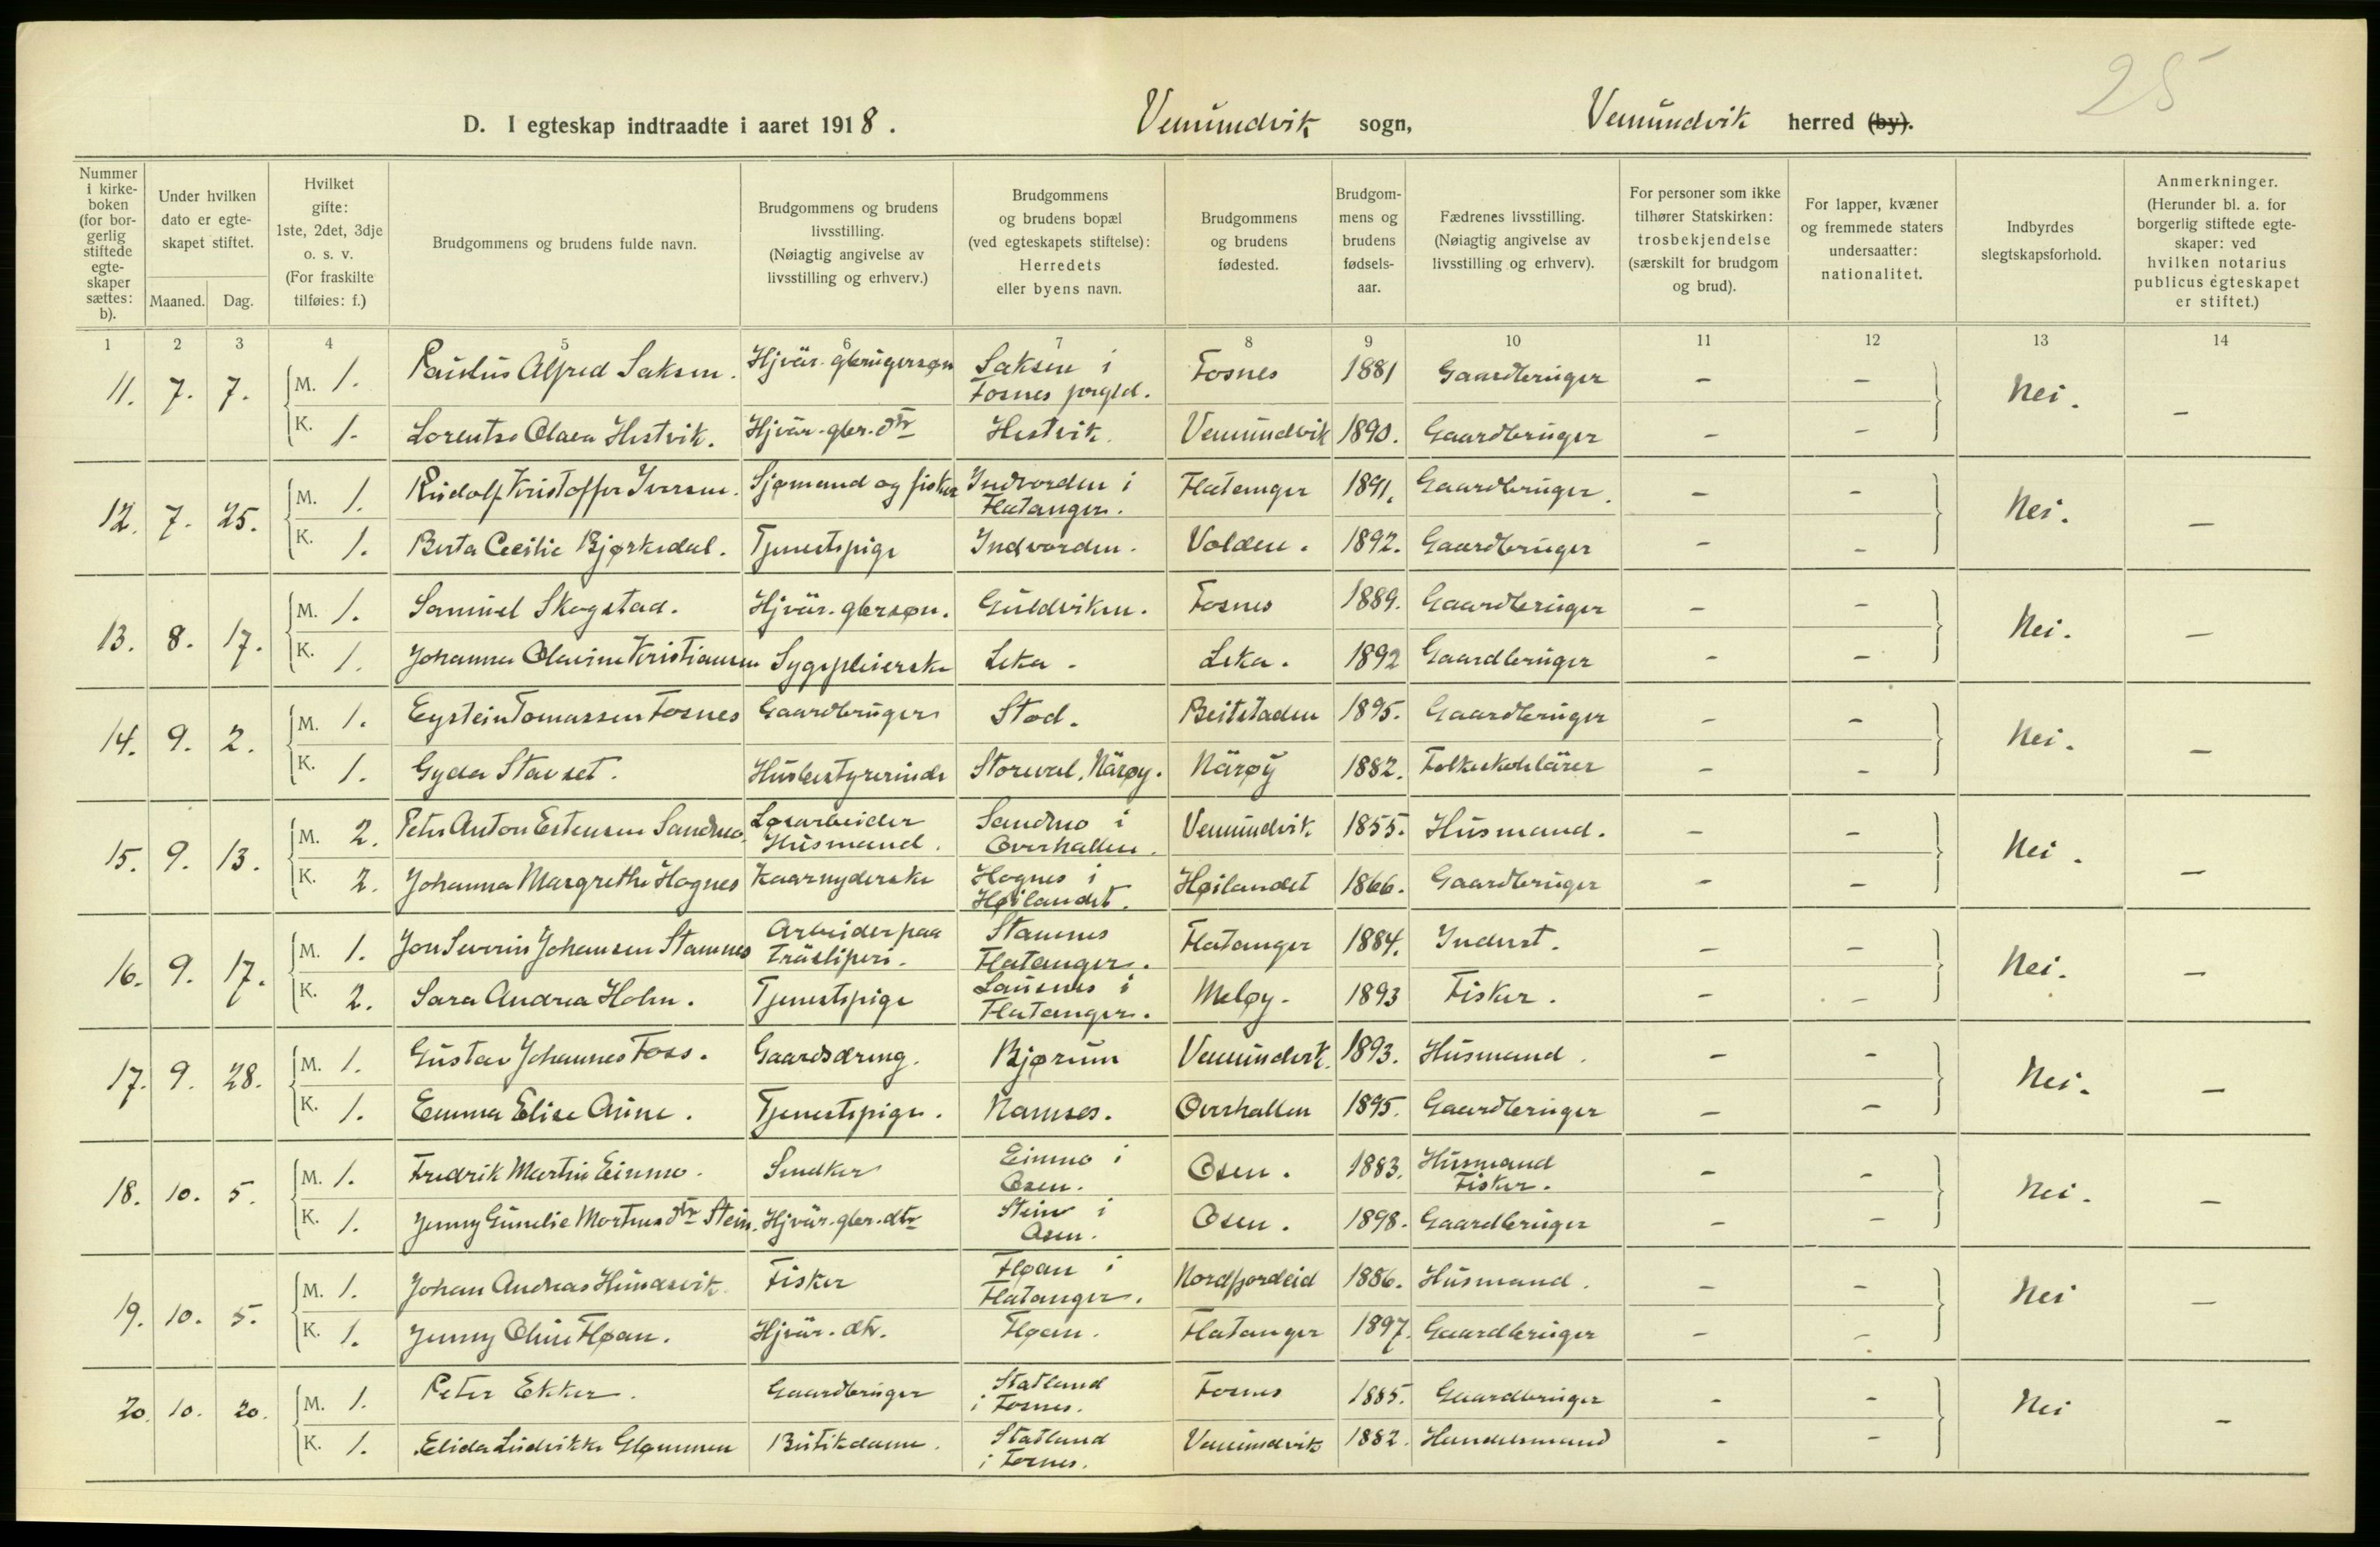 25
D. I egteskap indtraadte i aaret 1918. Vemundvik sogn, Vemundvik herred (by).
Nummer i kirkeboken (for borgerlig stiftede egteskaper sættes: b).
Under hvilken dato er egteskapet stiftet.
Maaned. Dag.
Hvilket gifte: 1ste, 2det, 3dje o. s. v. (For fraskilte tilføies: f.)
Brudgommens og brudens fulde navn.
Brudgommens og brudens livsstilling. (Nøiagtig angivelse av livsstilling og erhverv.)
Brudgommens og brudens bopæl (ved egteskapets stiftelse): Herredets eller byens navn.
Brudgommens og brudens fødested.
Brudgommens og brudens fødselsaar.
Fædrenes livsstilling. (Nøiagtig angivelse av livsstilling og erhverv).
For personer som ikke tilhører Statskirken: trosbekjendelse (særskilt for brudgom og brud).
For lapper, kvæner og fremmede staters undersaatter: nationalitet.
Indbyrdes slegtskapsforhold.
Anmerkninger. (Herunder bl. a. for borgerlig stiftede egteskaper: ved hvilken notarius publicus egteskapet er stiftet.)
1 2 3 4 5 6 7 8 9 10 11 12 13 14
11. 7. 7. M. 1. Paulus Alfred Saksen. Hjvär. gbrugersøn Saksen i Fosnes prgld. Fosnes 1881 Gaardbruger - - Nei. -
K. 1. Lorentse Olava Hestvik. Hjvär. gbr. dtr Hestvik. Vemundvik 1890. Gaardbruger - -
12. 7. 25. M. 1. Rudolf Kristoffer Iversen. Sjømand og fisker Indvorden i Flatanger. Flatanger 1891. Gaardbruger. - - Nei. -
K. 1. Berta Cecilie Bjørkedal. Tjenestpige Indvorden. Volden. 1892. Gaardbruger - -
13. 8. 17. M. 1. Samuel Skogstad. Hjvär. gbrsøn. Guldviken. Fosnes 1889. Gaardbruger - - Nei. -
K. 1. Johanna Olavine Kristiansen Sygepleierske Leka. Leka. 1892 Gaardbruger - -
14. 9. 2. M. 1. Eystein Tomassen Fosnes Gaardbruger Stod. Beitstaden 1895. Gaardbruger - - Nei. -
K. 1. Gyda Stavset. Husbestyrerinde Storeval, Närøy. Närøy 1882. Folkeskolelärer - -
15. 9. 13. M. 2. Peter Anton Estensen Sandmo. Løsarbeider Husmand. Sandmo i Overhallen. Vemundvik 1855. Husmand. - - Nei. -
K. 2. Johanna Margrethe Hognes Kaarnyderske Hognes i Høilandet. Høilandet 1866. Gaardbruger - -
16. 9. 17. M. 1. Jon Severin Johansen Stamnes Arbeider paa Träsliperi. Stamnes Flatanger. Flatanger 1884. Inderst. - - Nei. -
K. 2. Sara Andrea Holm. Tjenestpige Lausnes i Flatanger. Meløy. 1893 Fisker. - -
17. 9. 28. M. 1. Gustav Johannes Foss. Gaardsdreng. Bjørum Vemundvik. 1893. Husmand. - - Nei. -
K. 1. Emma Elise Aune. Tjenestpige. Namsos. Overhallen 1895. Gaardbruger - -
18. 10. 5. M. 1. Fredrik Martin Einmo. Snedker Einmo i Osen. Osen. 1883. Husmand Fisker. - - Nei. -
K. 1. Jenny Gunelie Mortens dtr Stein. Hjvär. gbr. dtr Stein i Osen. Osen. 1898. Gaardbruger - -
19. 10. 5. M. 1. Johan Andreas Hundsvik. Fisker Fløan i Flatanger. Nordfjordeid 1886. Husmand. - - Nei -
K. 1. Jenny Oline Fløan. Hjvär. dtr. Fløan. Flatanger 1897. Gaardbruger - -
20. 10. 20. M. 1. Peter Ekker. Gaardbruger Statland i Fosnes. Fosnes 1885. Gaardbruger - - Nei -
K. 1. Elida Ludvikke Glømmen Butikdame. Statland i Fosnes. Vemundvik 1882. Handelsmand - -